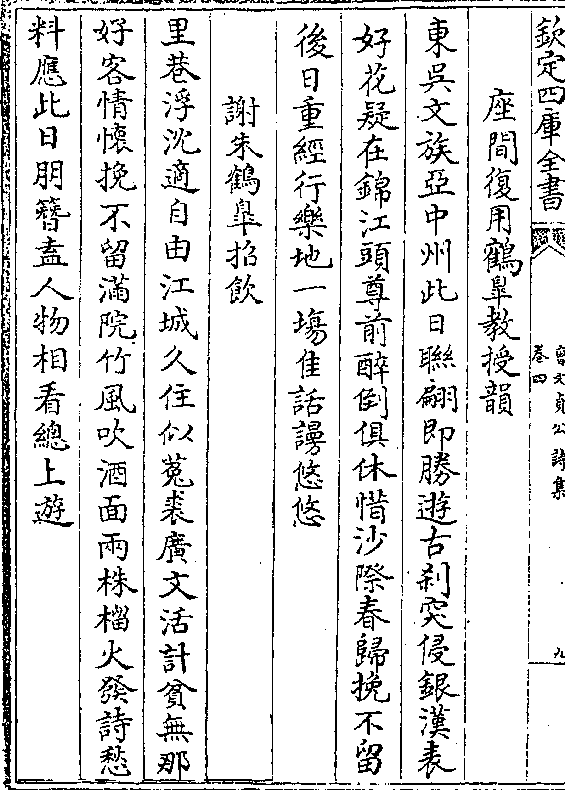 欽定四庫全書
曹文貞公詩集
卷四
九
座間復用鶴皐教授韻
東吳文族亞中州此日聯翩即勝遊古刹突侵銀漢表
好花疑在錦江頭尊前醉倒俱休惜沙際春歸挽不留
後日重經行樂地一塲佳話謾悠悠
謝朱鶴皐招飲
里巷浮沈適自由江城久住似菟裘廣文活計貧無那
好客情懷挽不留滿院竹風吹酒面兩株榴火發詩愁
料應此日朋簪盍人物相看總上遊